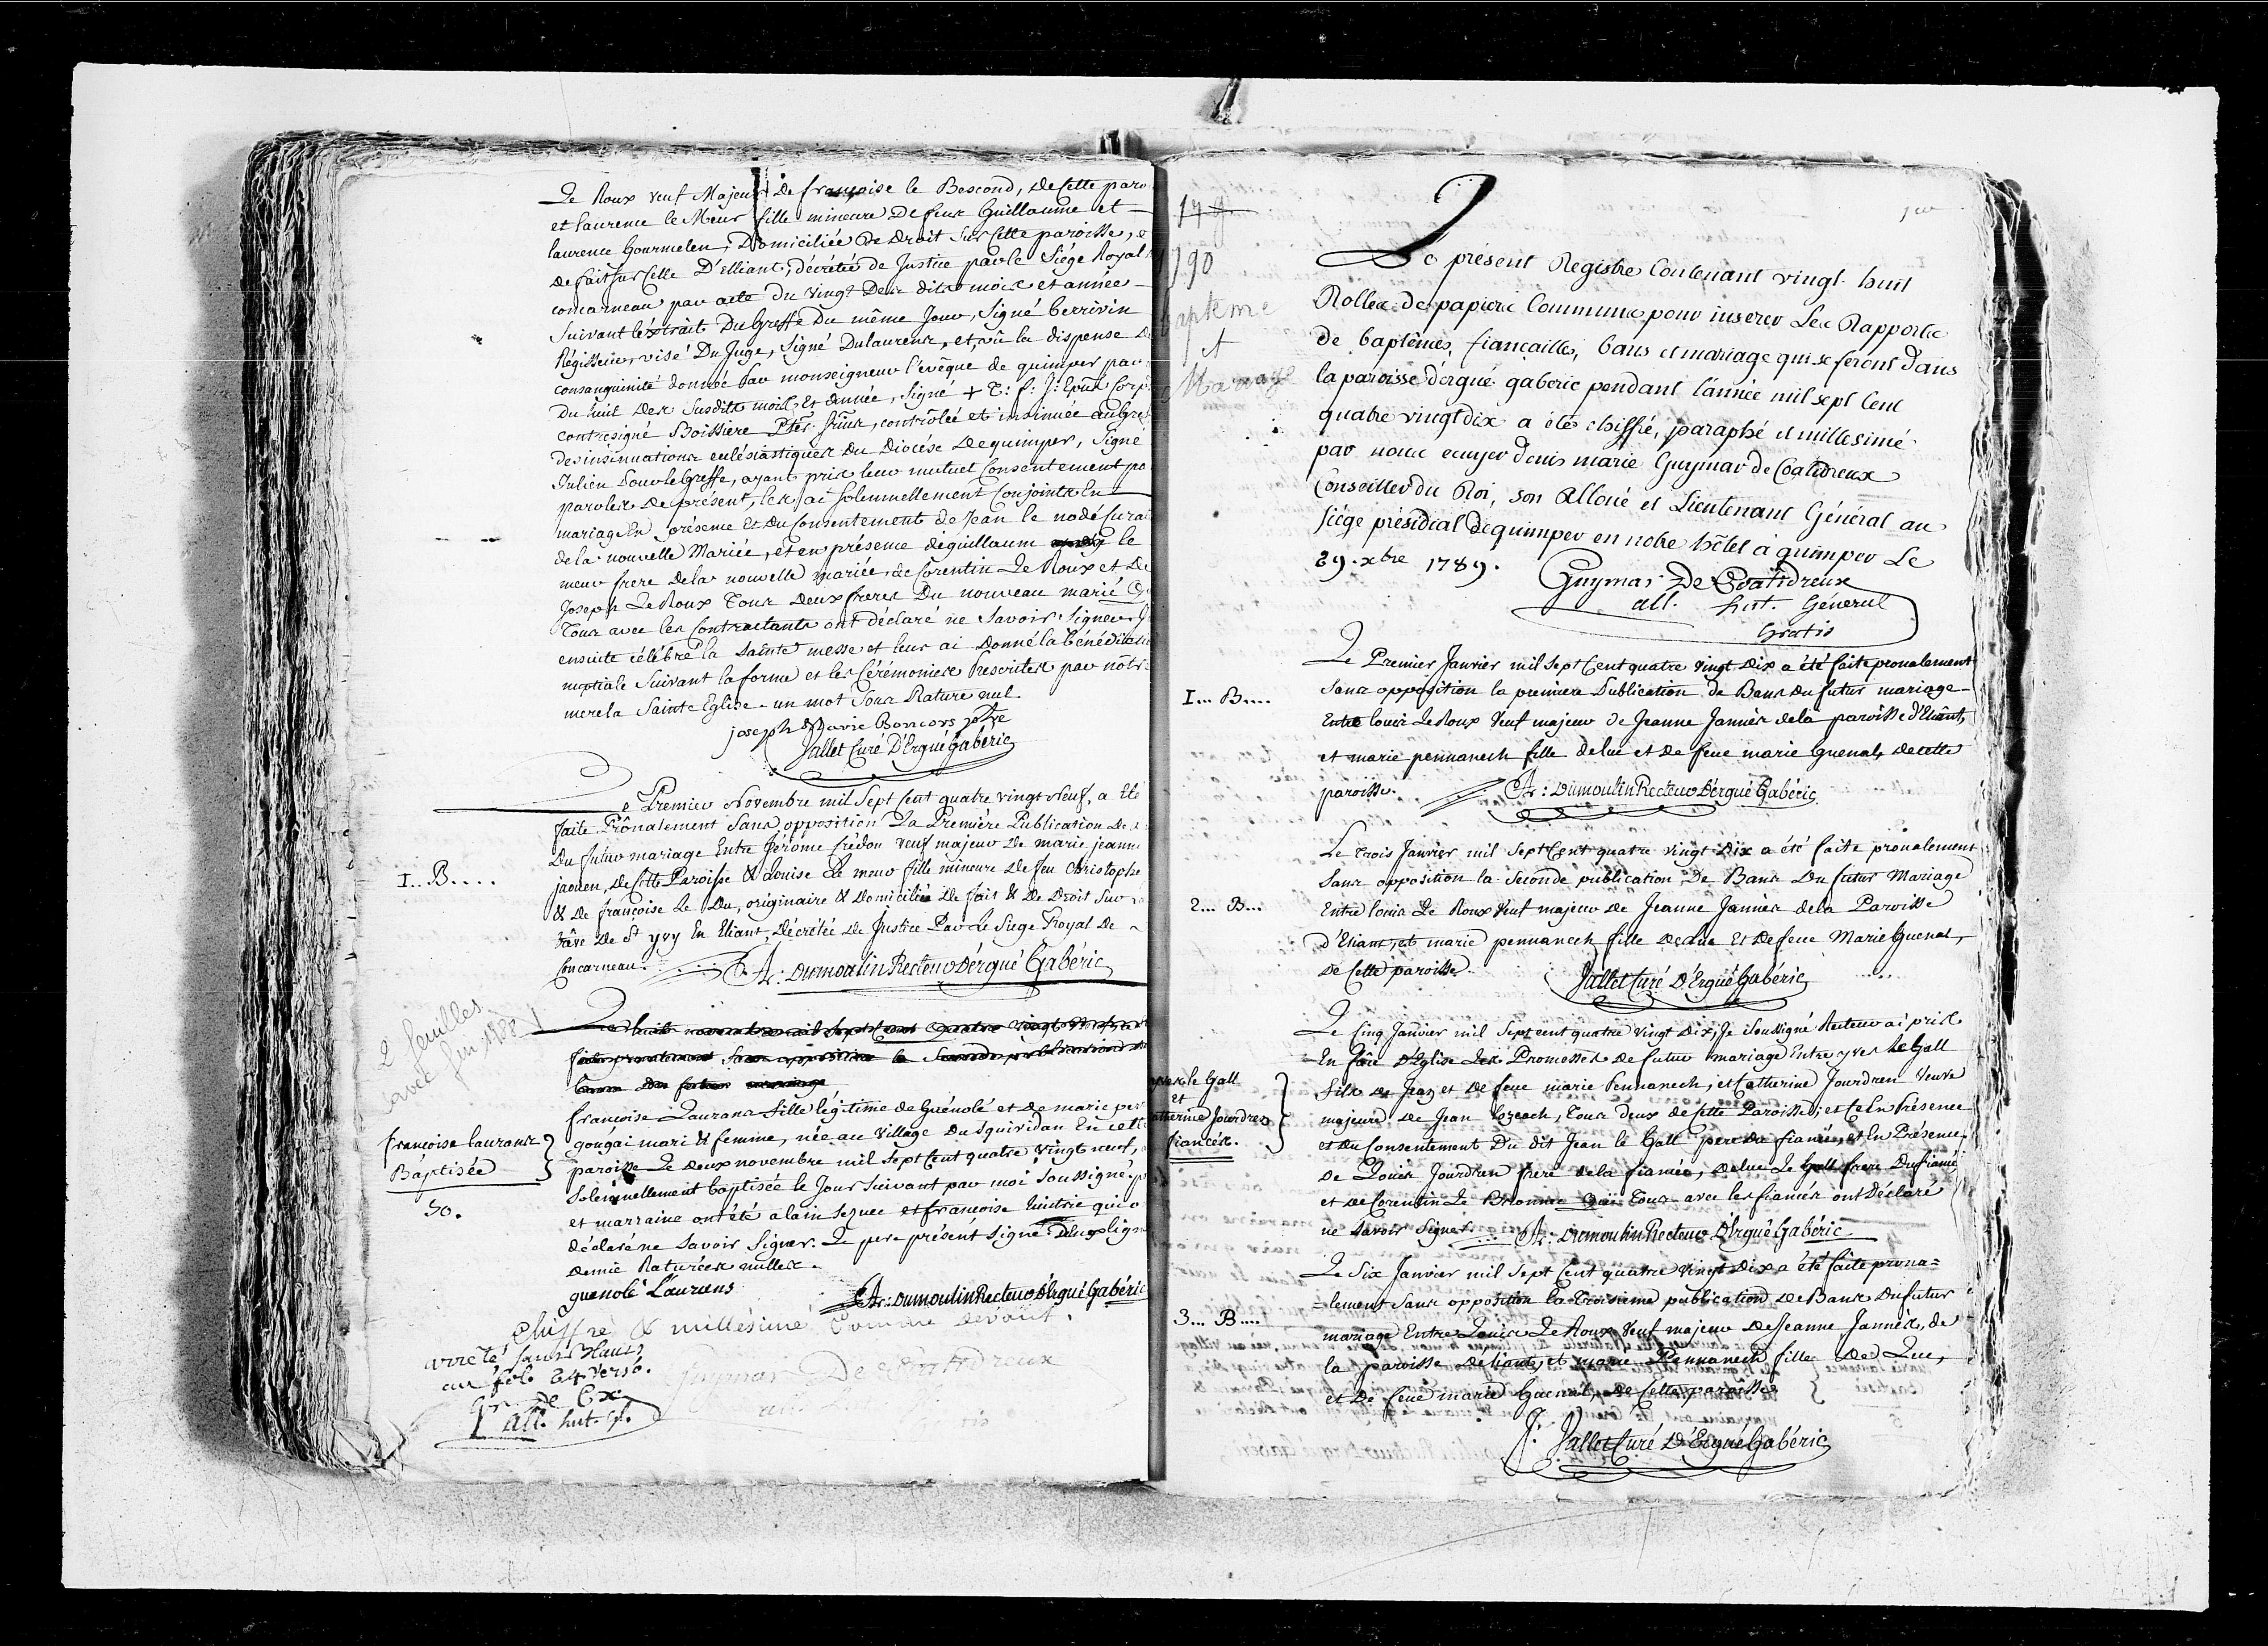 Le Roux veuf Majeur de françoise le Bescond, de Cette paro
et laurence le Meur fille mineure De feux Guillaume et
laurence Gourmelen, Domiciliée de Droit sur Cette paroisse, e
de fait sur Celle D'Elliant, décrétée de Justice par le Siége Royal
concarneau par acte du vingt Des dits mois et année
Suivant l'éxtrait Du Greffe Du même Jour, Signé berrivin
Régisseur, visé Du Juge, Signé Dulaurens, et, vû la dispense De
consanguinité donnée Par monseigneur l'évêque de quimper par
Du huit Des Susdits mois Et année, Signé + T: f: J:
contresigné Boissiere, contrôlée et insinuée au Gref
des insinuations eclésiastiques Du Diocése De quimper, Signé
Julien Pour le Greffe, ayant pris leur mutuel Consentement pa
paroles De présent, les ai Solemnellement Conjoints En
mariage En présence Et Du Consentement de Jean le nodé Cura
de la nouvelle Mariée, et en présence de guillaum le
meur frere De la nouvelle mariée, de Corentin Le Roux et De
Joseph Le Roux Tous Deux freres Du nouveau marié Q
Tous avec les Contractants ont déclaré ne Savoir Signer. J
ensuite célébré la Sainte messe et leur ai Donné la bénédiction
nuptiale Suivant la forme et les Cérémonies Prescrites par nôtr
mere la Sainte Eglise. un mot Sous Rature nul.
joseph Marie Boncors ptre
Jallet Curé D'Ergué Gabéric
I...B....
Le Premier Novembre mil Sept Cent quatre vingt Neuf, a Eté
faite Prônalement Sans opposition La Première Publication De
Du futur mariage Entre Jérôme Crédou veuf majeur de marie jeanne
jaouen, de Cette Paroisse & Louise Le meur fille mineure De feu Christophe
& De françoise Le Du, originaire & Domiciliée De fait & De Droit Sur
Trêve De St yvy En Eliant, Décrétée De Justice Par Le Siege Royal De
Concarneau.
A: Dumoulin Recteur D'ergué Gabéric
2 feuilles
Le huit novembre mil Sept Cent quatre vingt Neuf
faite pronalement Sans opposition la Seconde publication de
bans Du futur mariage
françoise laurans
Baptisée
50.
françoise Laurans fille légitime de Guénolé et De marie per
gougai mari & femme, née au Village Du Squividan En cette
paroisse Le Deux novembre mil Sept Cent quatre Vingt neuf,
Solemnellement baptisée le Jour Suivant par moi Soussigné. p
et marraine ont été alain Seznec et françoise qui o
déclaré ne Savoir Signer. Le pere présent Signe. Deux lign
Demie Raturées nulles.
guenolé Laurens
A: Dumoulin Recteur D'Ergué Gabéric
Chiffré & millésimé Comme devant.
arreté sans blancs
au folio 24 verso.
Guymar De Coatidreux
G. De Cx
all. lieut. gl.
179
1790
Baptême
et
Mariage
1er
Le présent Registre Contenant vingt huit
Rolles de papier Commun pour inserer Les Rapports
de baptêmes, fiançailles, bans et mariage qui se feront dans
la paroisse d'ergué gaberic pendant l'année mil sept Cent
quatre vingt dix a été chiffré, paraphé et millesimé
par nous ecuyer Denis marie Guymar de Coatidreux
Conseiller du Roi, son Alloué et Lieutenant Général au
siége présidial de quimper en notre hôtel à quimper Le
29. xbre 1789.
Guymar De Coatidreux
all. lieut. Géneral
Gratis
I... B....
Le Premier Janvier mil Sept Cent quatre Vingt Dix a été faite pronalement
Sans opposition la premiere Publication de Bans du futur mariage
Entre louis Le Roux Veuf majeur de Jeanne Jannès de la paroisse d'Eliant,
et marie pennanech fille de luc et De feue marie Guenal, de cette
paroisse.
A: Dumoulin Recteur D'érgué Gabéric
2... B...
Le Trois Janvier mil Sept Cent quatre vingt Dix a été faite pronalement
Sans opposition la Seconde publication De Bans Du futur Mariage
Entre louis Le Roux Veuf majeur de Jeanne Jannès de la Paroisse
d'Eliant, et marie pennanech fille De Luc Et De feue Marie Guenal,
De Cette paroisse.
Jallet Curé D'Ergué Gabéric
yves le Gall
et
Catherine Jourdren
fiancés.
Le Cinq Janvier mil Sept cent quatre Vingt Dix, Je Soussigné Recteur ai pris
En face D'Eglise Les Promesses de futur mariage Entre yves Le Gall
fils de Jean et De feue marie Pennanech, et Catherine Jourdren Veuve
majeure de Jean Lozeach, Tous Deux de Cette Paroisse, et Ce En Présence
et Du Consentement Du dit Jean le Gall pere du fiancé, et En Présence
De Louis Jourdren frere de la fiancée, De luc Le Gall frere Du fiancé
et de Corentin Le Qui Tous avec les fiancés ont Déclaré
ne Savoir Signer.
A: Dumoulin Recteur D'Ergué Gabéric
3... B....
Le Six Janvier mil Sept Cent quatre Vingt Dix a été faite prona=
=lement Sans opposition la Troisieme publication De Bans Du futur
mariage Entre Louis Le Roux Veuf majeur De Jeanne Jannès, de
la paroisse d'eliant, et marie Pennanech fille De Luc,
et De feue marie Guenal, De Cette paroisse.
J. Jallet Curé D'Ergué Gabéric